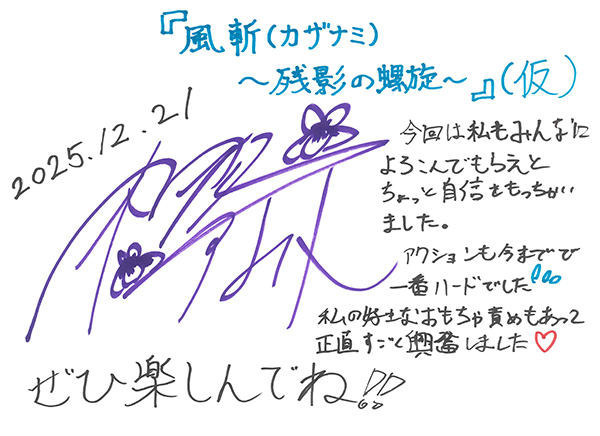 『風斬(カザナミ)
～残影の螺旋～』(仮)
2025.12.21
今回は私もみんなに
よろこんでもらえと
ちょっと自信をもっちゃい
ました。
アクションも今までで
一番ハードでした
私の好きなおもちゃ責めもあって
正直すごく興奮しました♡
ぜひ楽しんでね!!